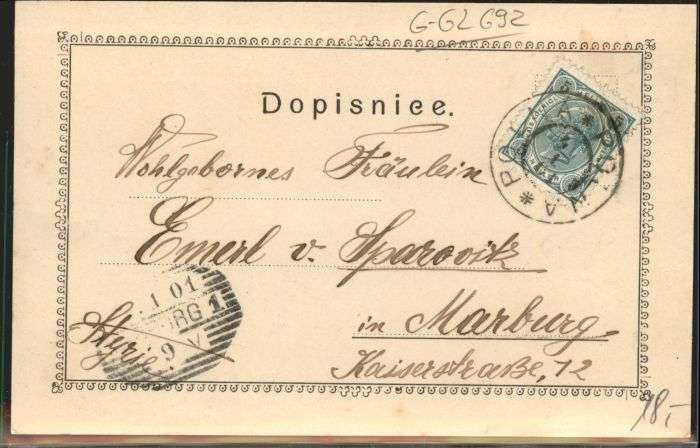 G-G2 692
Dopisnice.
Wohlgebornes Fräulein
Emerl v. Sparovitz
in Marburg
Kaiserstraße, 12
Styrie.
1 01
RG 1
9 V
POLA
18.-